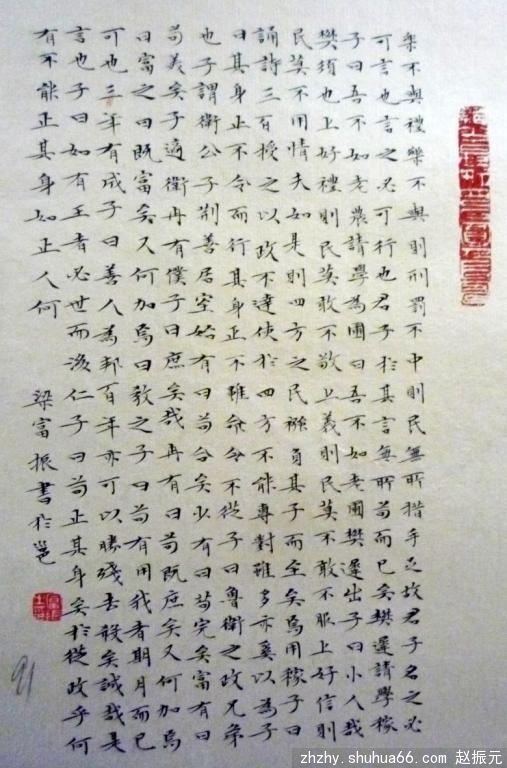 樂不興禮樂不興則刑罰不中則民無所措手足故君子名之必
可言也言之必可行也君子於其言無所苟而已矣樊遲請學稼
子曰吾不如老農請學為圃曰吾不如老圃樊遲出子曰小人哉
樊須也上好禮則民莫敢不敬上義則民莫不敢不服上好信則
民莫不用情夫如是則四方之民襁負其子而至矣焉用稼子曰
誦詩三百授之以政不達使於四方不能專對雖多亦奚以為子
曰其身正不令而行其身正不雖命令不從子曰魯衛之政兄弟
也子謂衛公子荊善居室始有曰苟合矣少有曰苟完矣富有曰
苟美矣子適衛冉有僕子曰庶矣哉冉有曰苟既庶矣又何加焉
曰富之曰既富矣又何加焉曰教之子曰苟有用我者期月而已
可也三年有成子曰善人為邦百年亦可以勝殘去殺矣誠哉是
言也子曰如有王者必世而後仁子曰苟正其身矣於從政乎何
有不能正其身如正人何
梁富振書於邕
91
zhzhy.shuhua66.com 赵振元